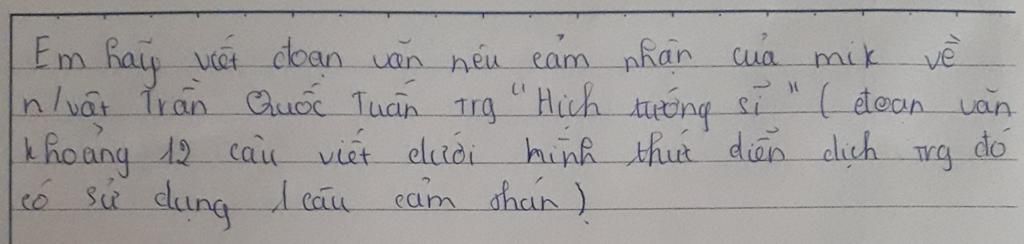 Em hãy viết đoạn văn nêu cảm nhận của mik về
n/vật Trần Quốc Tuấn trg "Hịch tướng sĩ" (đoạn văn
khoảng 12 câu viết dưới hình thức diễn dịch trg đó
có sử dụng 1 câu cảm thán)